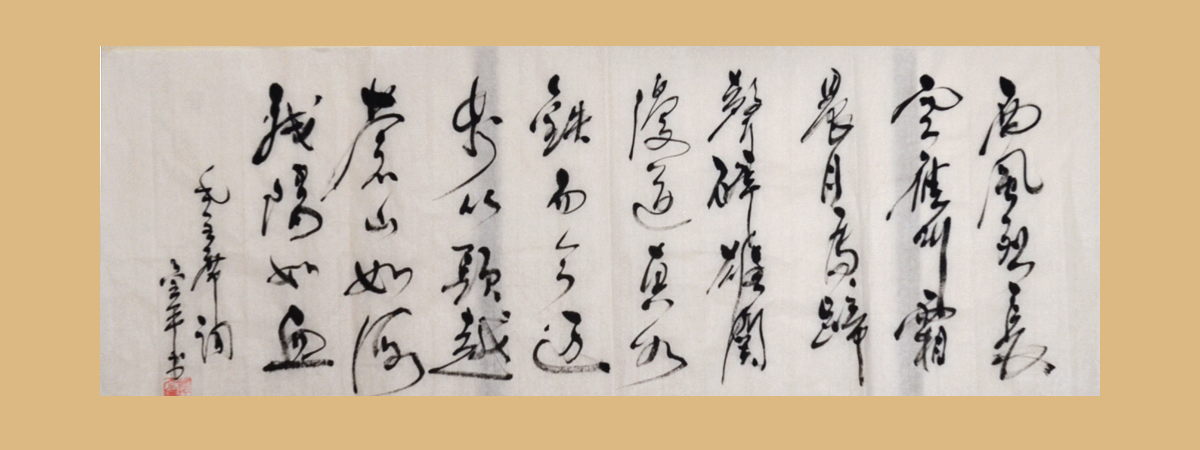 西風烈長
空雁叫霜
晨月馬蹄
聲碎雄關
漫道真如
鐵而今迈
步从頭越
蒼山如海
殘陽如血
毛主席詞
平书